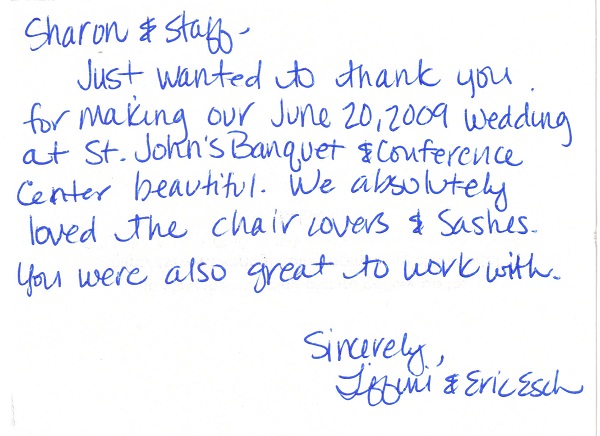 Sharon & Staff-
Just wanted to thank you
for making our June 20, 2009 wedding
at St. John's Banquet & Conference
Center beautiful. We absolutely
loved the chair covers & Sashes.
You were also great to work with.
Sincerely,
& Eric Esch